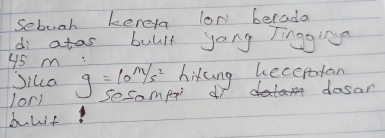 Sebuah kereta lori berada
di atas bukit yang Tingginya
45 m :
Jika g = 10 m/s² hitung kecepatan
lori sesampai di dasar
bukit !